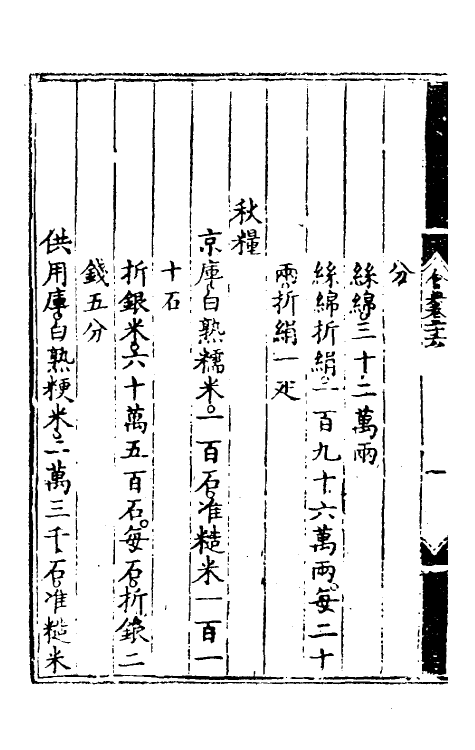 分
絲綿三十二萬兩
絲綿折絹一百九十六萬兩每二十
兩折絹一疋
秋糧
京庫白熟糯米一百石准糙米一百一
十石
折銀米六十萬五百石每石折銀二
錢五分
供用庫白熟粳米二萬三千石准糙米